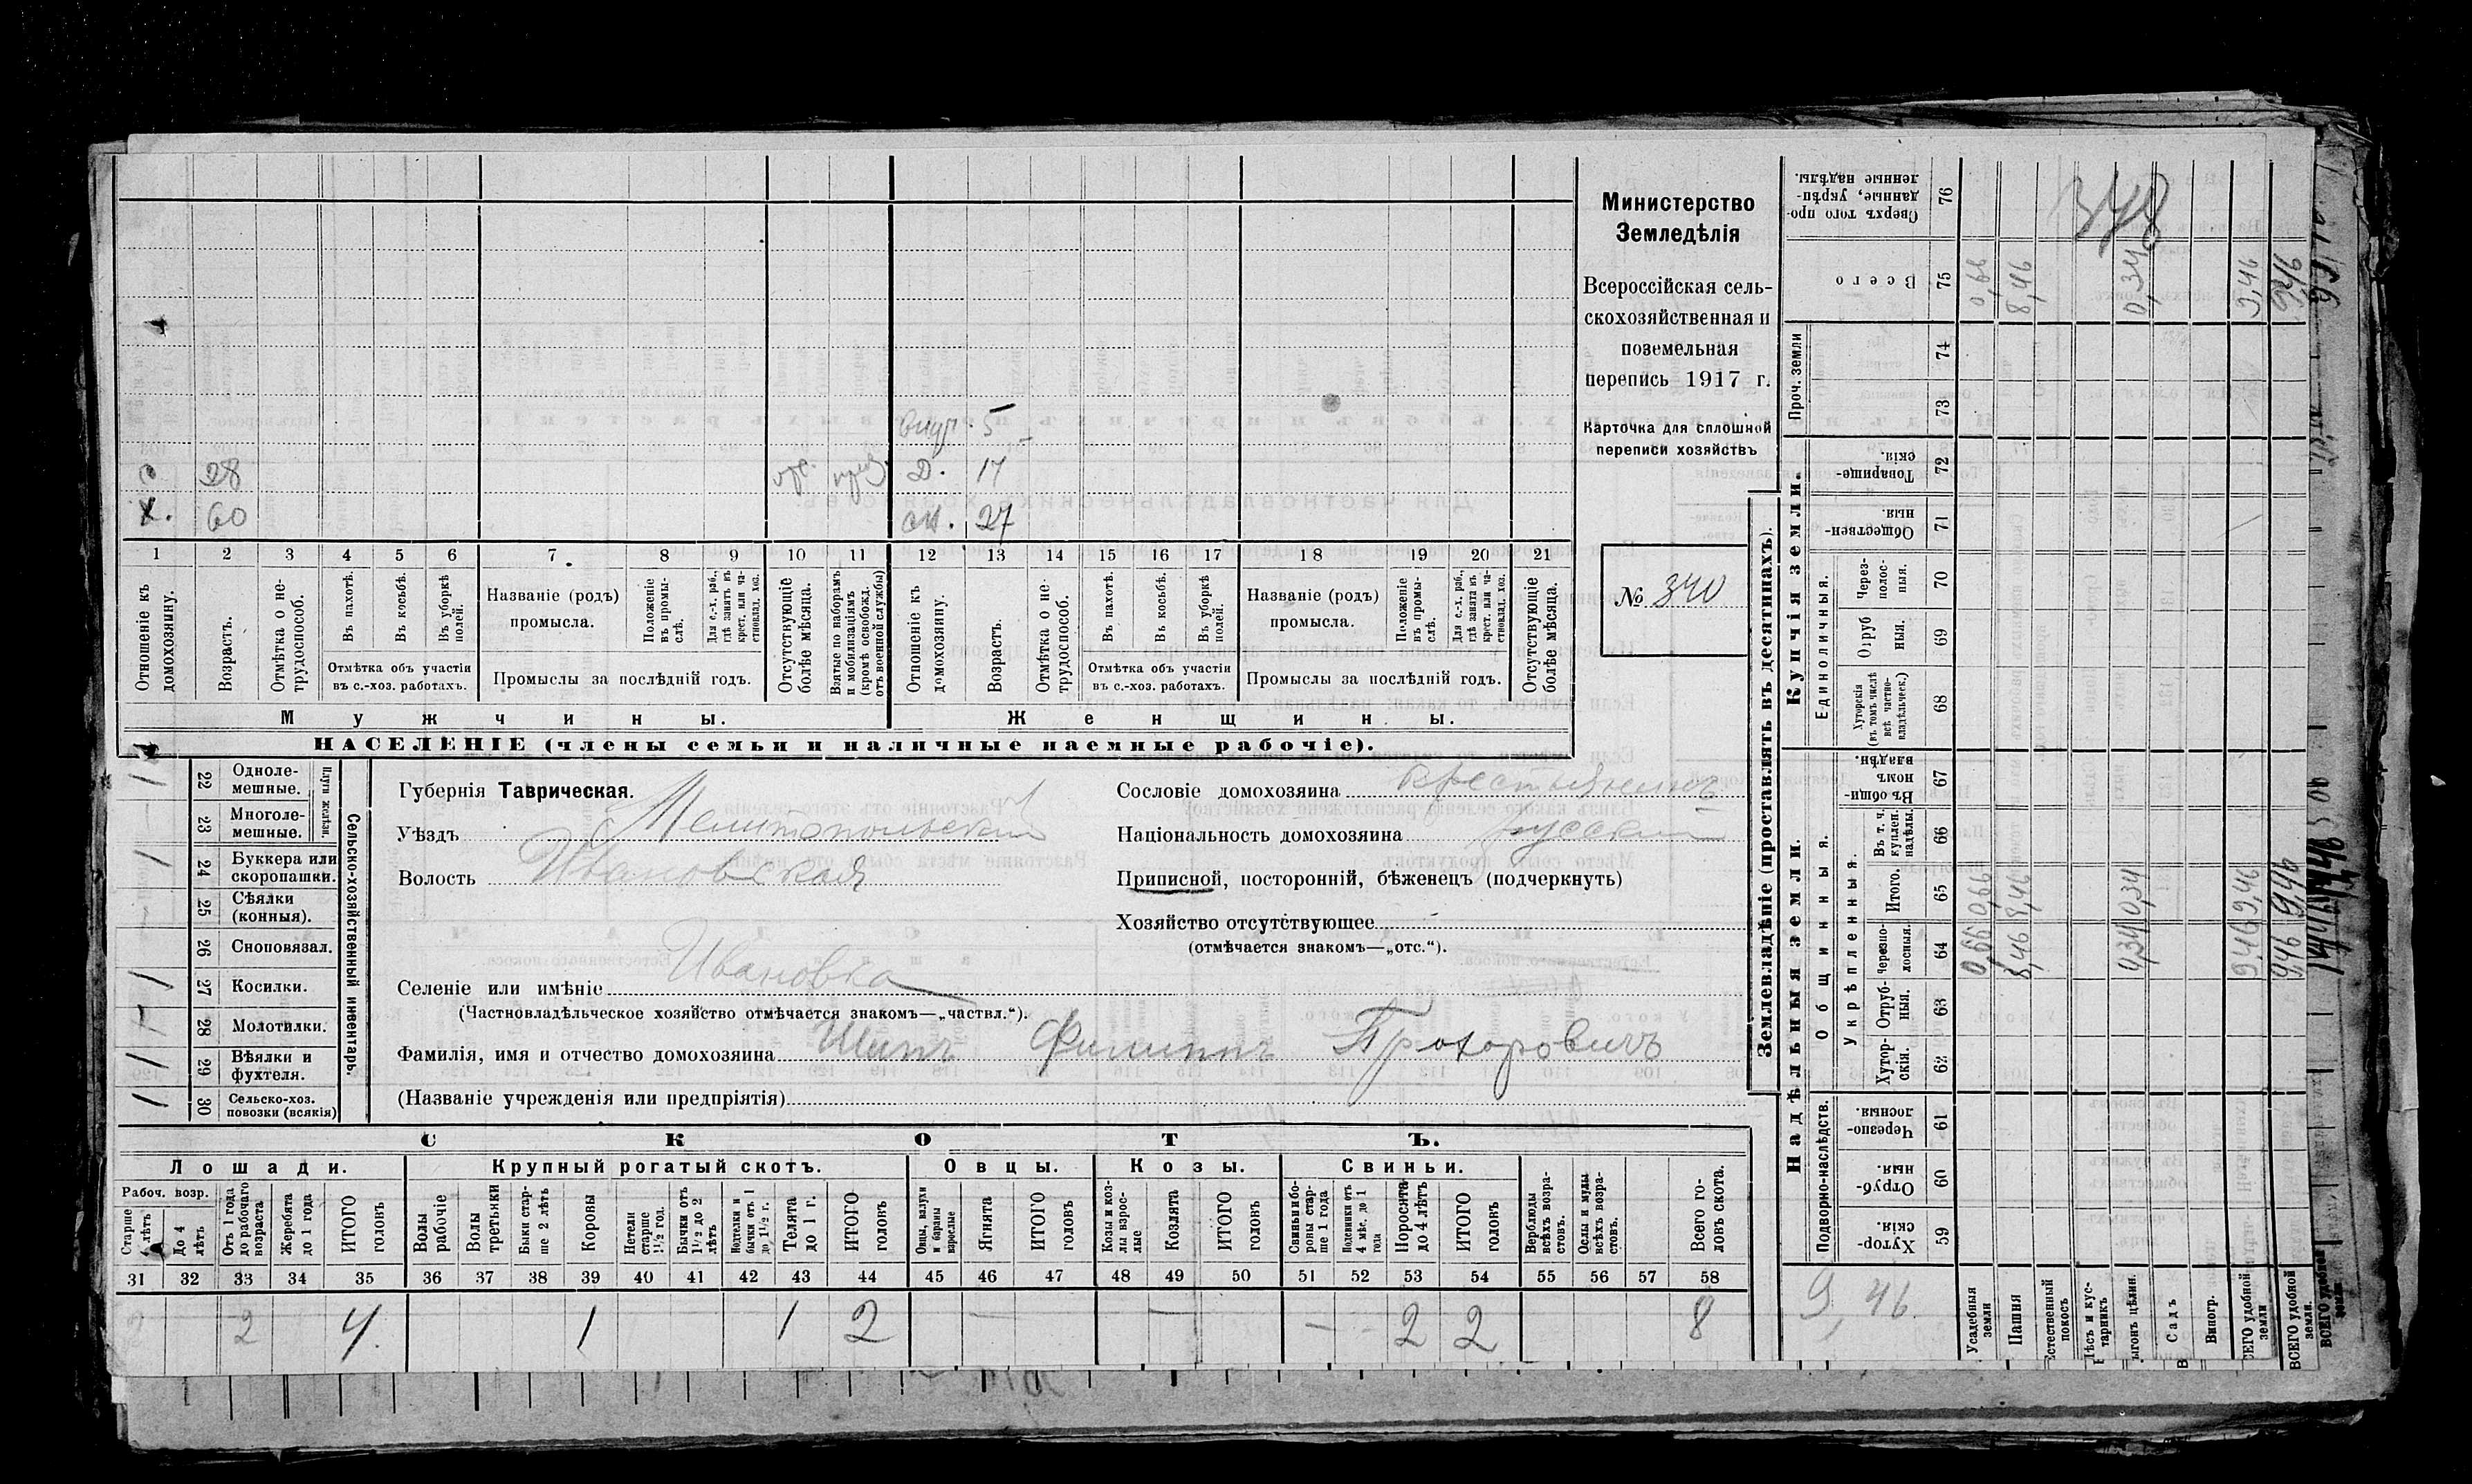 с. 28
х. 60
внуч. 5
д. 17
сн. 27
1 2 3 4 5 6 7 8 9 10 11 12 13 14 15 16 17 18 19 20 21
Отношеніе къ домохозяину.
Возрастъ.
Отмѣтка о не-
трудоспособ.
Въ пахотѣ.
Въ косьбѣ.
Въ уборкѣ полей.
Отмѣтка объ участіи
въ с.-хоз. работахъ.
Названіе (родъ)
промысла.
Положеніе въ промы-
слѣ.
Для с.-х. раб.,
гдѣ занятъ въ
крест. или ча-
стновлад. хоз.
Промыслы за послѣдній годъ.
Отсутствующіе
болѣе мѣсяца.
Взятые по наборамъ
и мобилизаціямъ
(кромѣ освобожд.
отъ военной службы)
Отношеніе къ
домохозяину.
Возрастъ.
Отмѣтка о не-
трудоспособ.
Въ пахотѣ.
Въ косьбѣ.
Въ уборкѣ
полей.
Отмѣтка объ участіи
въ с.-хоз. работахъ.
Названіе (родъ)
промысла.
Положеніе
въ промы-
слѣ.
Для с.-х. раб.,
гдѣ занята въ
крест. или ча-
стновлад. хоз.
Промыслы за послѣдній годъ.
Отсутствующіе
болѣе мѣсяца.
Мужчины.
Женщины.
НАСЕЛЕНІЕ (члены семьи и наличные наемные рабочіе).
Министерство
Земледѣлія
Всероссійская сель-
скохозяйственная и
поземельная
перепись 1917 г.
Карточка для сплошной
переписи хозяйствъ
№ 340
22 Одноле-
мешные.
23 Многоле-
мешные.
Плуги желѣзн.
24 Буккера или
скоропашки.
25 Сѣялки
(конныя).
26 Сноповязал.
27 Косилки.
28 Молотилки.
29 Вѣялки и
фухтеля.
30 Сельско-хоз.
повозки (всякія)
Сельско-хозяйственный инвентарь.
Губернія Таврическая.
Уѣздъ Мелитопольскій
Волость Ивановская
Селеніе или имѣніе Ивановка
(Частновладѣльческое хозяйство отмѣчается знакомъ—„частвл.“).
Фамилія, имя и отчество домохозяина Шипъ Филиппъ Прохоровичъ
(Названіе учрежденія или предпріятія)
Сословіе домохозяина крестьянинъ
Національность домохозяина русскій
Приписной, посторонній, бѣженецъ (подчеркнуть)
Хозяйство отсутствующее
(отмѣчается знакомъ—„отс.“).
СКОТЪ.
Лошади.
Крупный рогатый скотъ.
Овцы.
Козы.
Свиньи.
Рабоч. возр.
Старше
4 лѣтъ
До 4
лѣтъ
Отъ 1 года
до рабочаго
возраста
Жеребята
до 1 года
ИТОГО
головъ
Волы
рабочіе
Волы
третьяки
Быки стар-
ше 2 лѣтъ
Коровы
Нетели
старше
1½ год.
Бычки отъ
1½ до 2
лѣтъ
Нодтелки и
бычки отъ 1
до 1½ г.
Телята
до 1 г.
ИТОГО
головъ
Овцы, валухи
и бараны
взрослые
Ягнята
ИТОГО
головъ
Козы и коз-
лы взрос-
лые
Козлята
ИТОГО
головъ
Свиньи и бо-
ровы стар-
ше 1 года
Подсвинки отъ
4 мѣс. до 1
года
Поросята
до 4 лѣтъ
ИТОГО
головъ
Верблюды
всѣхъ возра-
стовъ.
Ослы и мулы
всѣхъ возра-
стовъ.
Всего го-
ловъ скота.
31 32 33 34 35 36 37 38 39 40 41 42 43 44 45 46 47 48 49 50 51 52 53 54 55 56 57 58
2 2 4 1 1 2 — — — 2 2 8
Землевладѣніе (проставлять въ десятинахъ).
Надѣльныя земли.
Купчія земли.
Проч. земли
Подворно-наслѣдств.
Общинныя.
Укрѣпленныя.
Единоличныя.
Хутор-
скія. 59
Отруб-
ныя. 60
Черезпо-
лосныя. 61
Хутор-
скія. 62
Отруб-
ныя. 63
Черезпо-
лосныя. 64
Итого. 65
Въ т. ч.
куплен.
надѣлы. 66
Въ общи-
номъ
владѣн. 67
Хуторскія
(въ томъ числѣ
всѣ частно-
владѣльческ.) 68
Отруб
ныя. 69
Через-
полос-
ныя. 70
Обществен-
ныя. 71
Товарище-
скія. 72
73
74
Всего 75
Сверхъ того про-
данные, укрѣп-
ленные надѣлы. 76
348
9,46
Усадебныя
земли 0,66 0,66 0,66
Пашня 8,46 8,46 8,46
Естественный
покосъ
Лѣсъ и кус-
тарникъ
Выгонъ цѣлин. 0,34 0,34 0,34
Садъ
Виногр.
ВСЕГО удобной
земли 9,46 9,46 9,46
ВСЕГО удобной
земли. 9,46 9,46 9,46
ВСЕГО удобной
земли